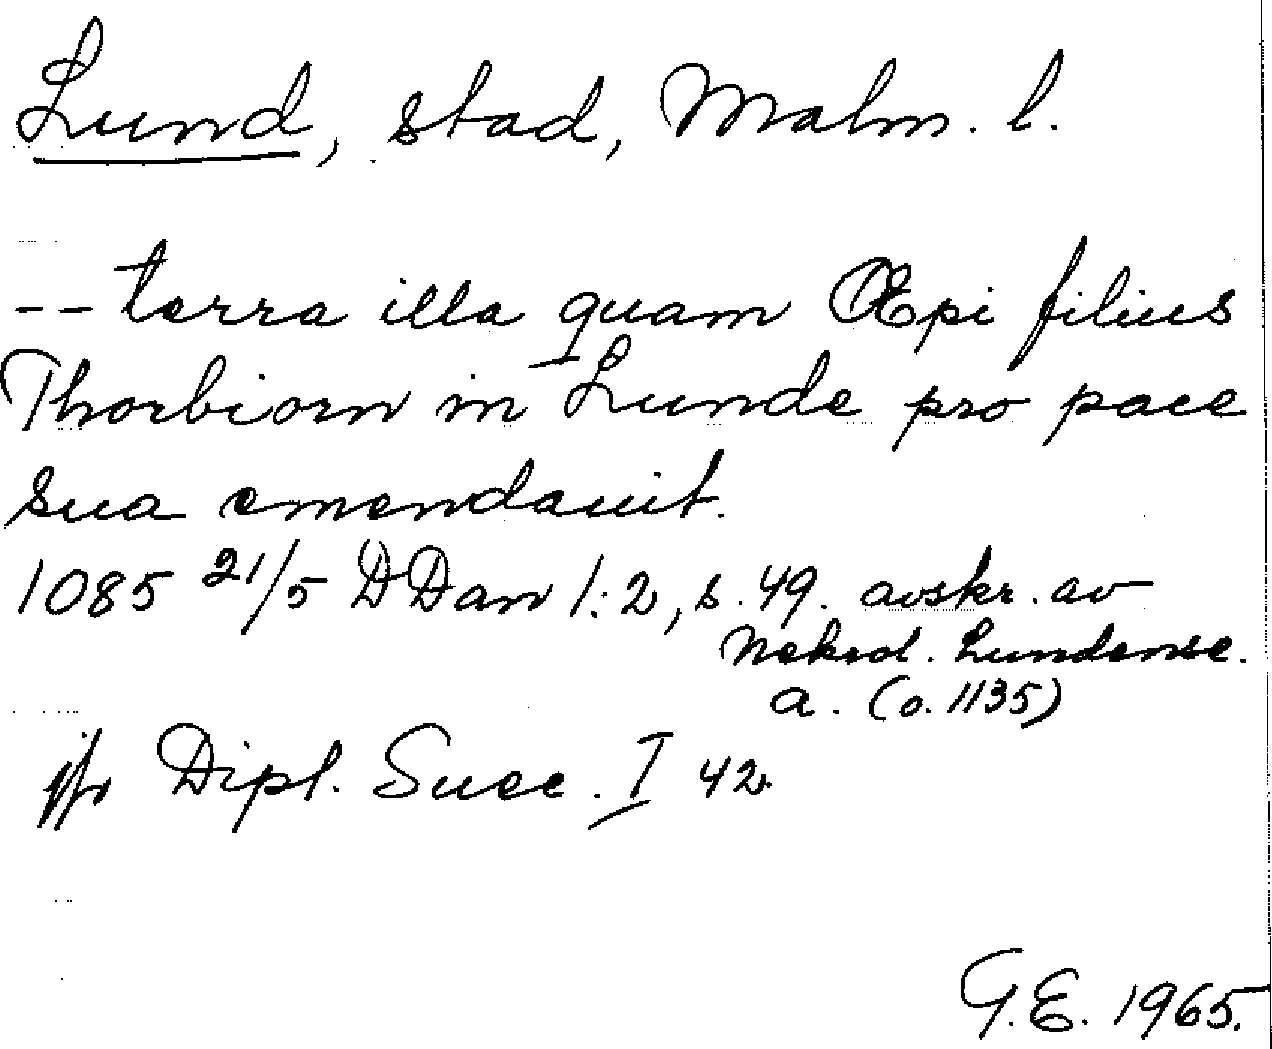 Lund, stad, Malm. l.
-- terra illa quam Œpi filius
Thorbiorn in Lunde pro pace
sua emendauit.
1085 21/5 DDan 1:2, s. 49. avskr. av
Nekrol. Lundense.
a. (o. 1135)
jfr Dipl. Suec. I 42.
G.E. 1965.